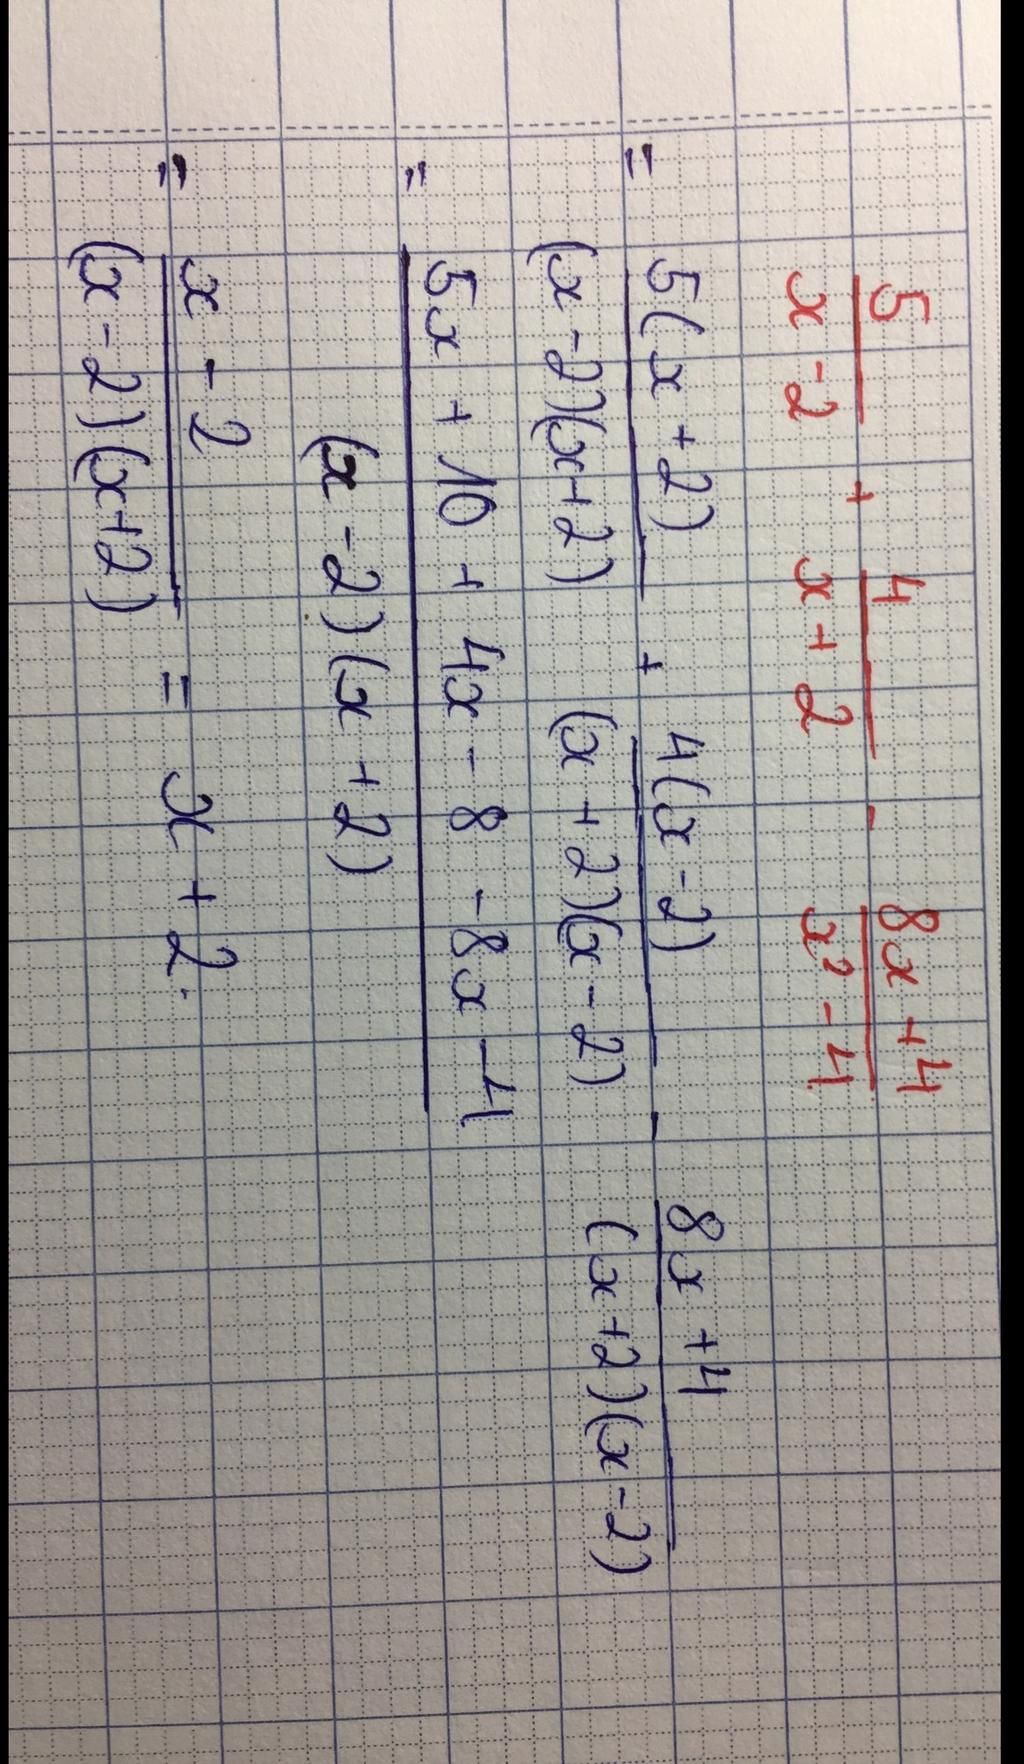 5/(x-2) + 4/(x+2) - (8x+4)/(x²-4)
= 5(x+2)/((x-2)(x+2)) + 4(x-2)/((x+2)(x-2)) - (8x+4)/((x+2)(x-2))
= (5x+10+4x-8-8x-4)/((x-2)(x+2))
= (x-2)/((x-2)(x+2)) = x+2.